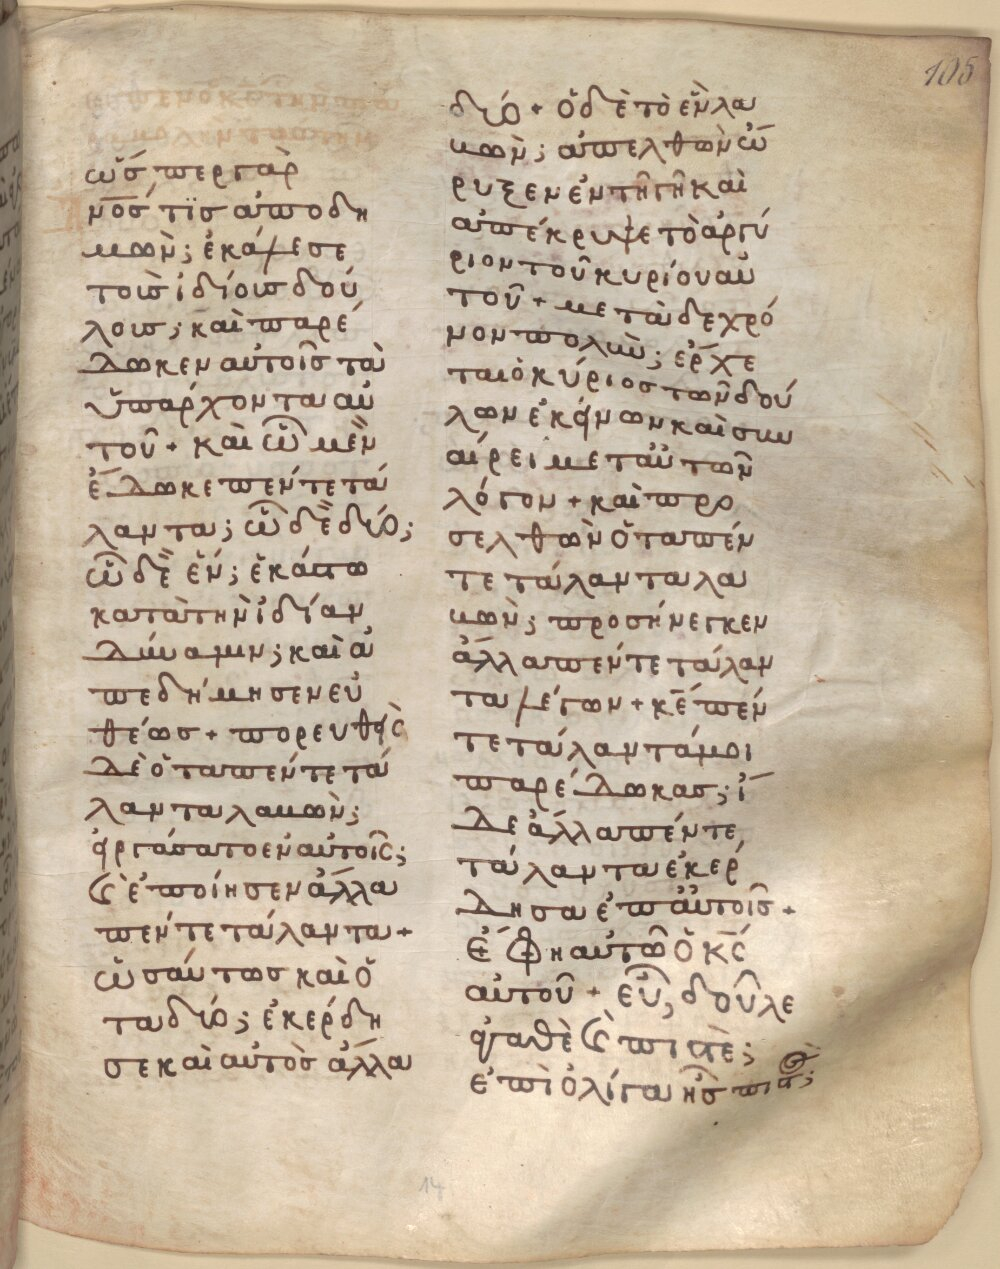 105
ὥσπερ γὰρ
α̅ν̅ο̅ς̅ τὶς ἀποδη
μῶν; ἐκάλεσε
τοῖς ἰδίοις δού
λοις; καὶ παρέ
δωκεν αὐτοῖς τὰ
ὑπάρχοντα αὐ
τοῦ + καὶ ᾧ μὲν
ἔδωκε πέντε τά
λαντα; ᾧ δὲ δύο;
ᾧ δὲ ἕν; ἑκάστω
κατὰ τὴν ἰδίαν
δύναμιν; καὶ ἀ
πεδήμησεν εὐ
θέως + πορευθεὶς
δὲ ὁ τὰ πέντε τά
λαντα λαβὼν;
εἰργάσατο ἐν αὐτοῖς;
κ(αὶ) ἐποίησεν ἄλλα
πέντε τάλαντα +
ὡσαύτως καὶ ὁ
τὰ δύο; ἐκέρδη
σε καὶ αὐτὸς ἄλλα
δύο + ὁ δὲ τὸ ἓν λα
βὼν; ἀπελθὼν ὤ
ρυξεν ἐν τῆ γῆ καὶ
ἀπέκρυψε τὸ ἀργύ
ριον τοῦ κυρίου αὐ
τοῦ + μετὰ δὲ χρό
νον πολὺν; ἔρχε
ται ὁ κύριος τῶν δού
λων ἐκείνων καὶ συν
αίρει μετ αὐτῶν
λόγον + καὶ προ
σελθὼν ὁ τὰ πέν
τε τάλαντα λα
βὼν; προσήνεγκεν
ἄλλα πέντε τάλαν
τα λέγων + κ̅ε̅ πέν
τε τάλαντά μοι
παρέδωκας; ἴ
δε ἄλλα πέντε
τάλαντα ἐκέρ
δησα ἐπ αὐτοῖς +
ἔφη αὐτῶ ὁ κ̅ς̅
αὐτοῦ + εὖ, δοῦλε
ἀγαθὲ κ(αὶ) πιστὲ;
ἐπὶ ὀλίγα ἦς πιστός;
14